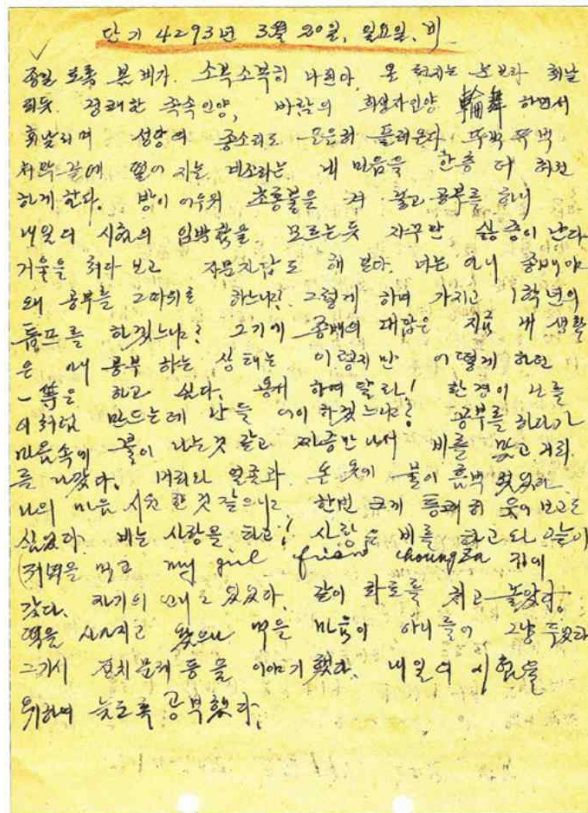 단기 4293년 3월 20일, 일요일, 비
종일토록 봄비가 소복소복히 나린다. 눈보라 휘날
리듯 경쾌한 족속인양, 바람의 희생자인양 輪舞 하면서
휘날리며 성당의 종소리도 은은히 들려온다. 뚜벅 뚜벅
처마 끝에 떨어지는 빗소리는 내 마음을 한층 더 허전
하게 한다. 방이 어두워 초롱불을 켜 놓고 공부를 하니
내일의 시험의 임박했을 모르는듯 자꾸만 싫증이 난다
거울을 쳐다 보고 자문자답도 해 본다. 너는 아니 종배야
왜 공부를 그따위로 하느냐? 그렇게 하여 가지고 1학년의
톱프를 하겠느냐? 그기에 종배의 대답은 지금 내 생활
은 내 공부 하는 상태는 이렇지만 어떻게 하던
一等은 하고 싶다. 용서 하여 달라! 환경이 나를
이처럼 만드는데 난들 어이 하겠느냐? 공부를 하다가
마음속에 불이 나는것 같고 짜증만 나서 비를 맞고 거리
를 나갔다. 머리와 얼굴과 온 옷에 물이 흠뻑 젖었다
나의 마음 시원한 것 같으니라 한번 크게 통쾌히 웃어보고도
싶었다. 비는 사랑을 타고! 사랑은 비를 타고와 오늘이
(저녁을 먹고 my girl frien choungza 집에
갔다. 자기의 언니도 있었다. 같이 화로를 쳐고 놀았다.
떡을 사가지고 왔으나 먹을 마음이 아니들어 그냥 두었다
그기서 정치문제 등을 이야기 했다. 내일의 시험을
위하여 늦도록 공부했다.